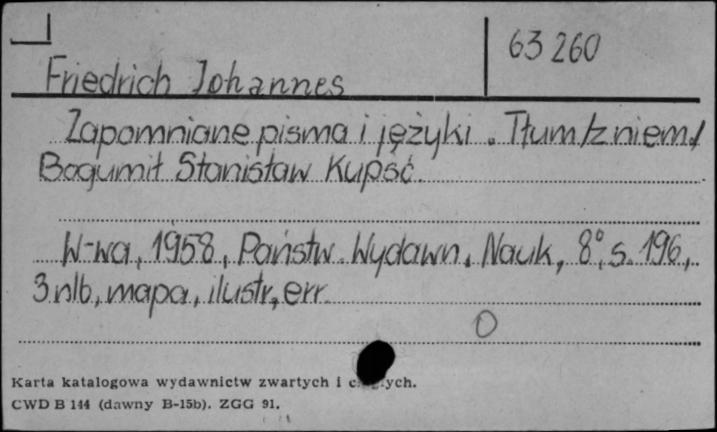 63 260
Friedrich Johannes
Zapomniane pisma i języki. Tłum/z niem/
Bogumił Stanisław Kupść.
W-wa, 1958, Państw. Wydawn. Nauk, 8°, s. 196,
3 nlb, mapa, ilustr, err.
0
Karta katalogowa wydawnictw zwartych i
CWD B 144 (dawny B-15b). ZGG 91.